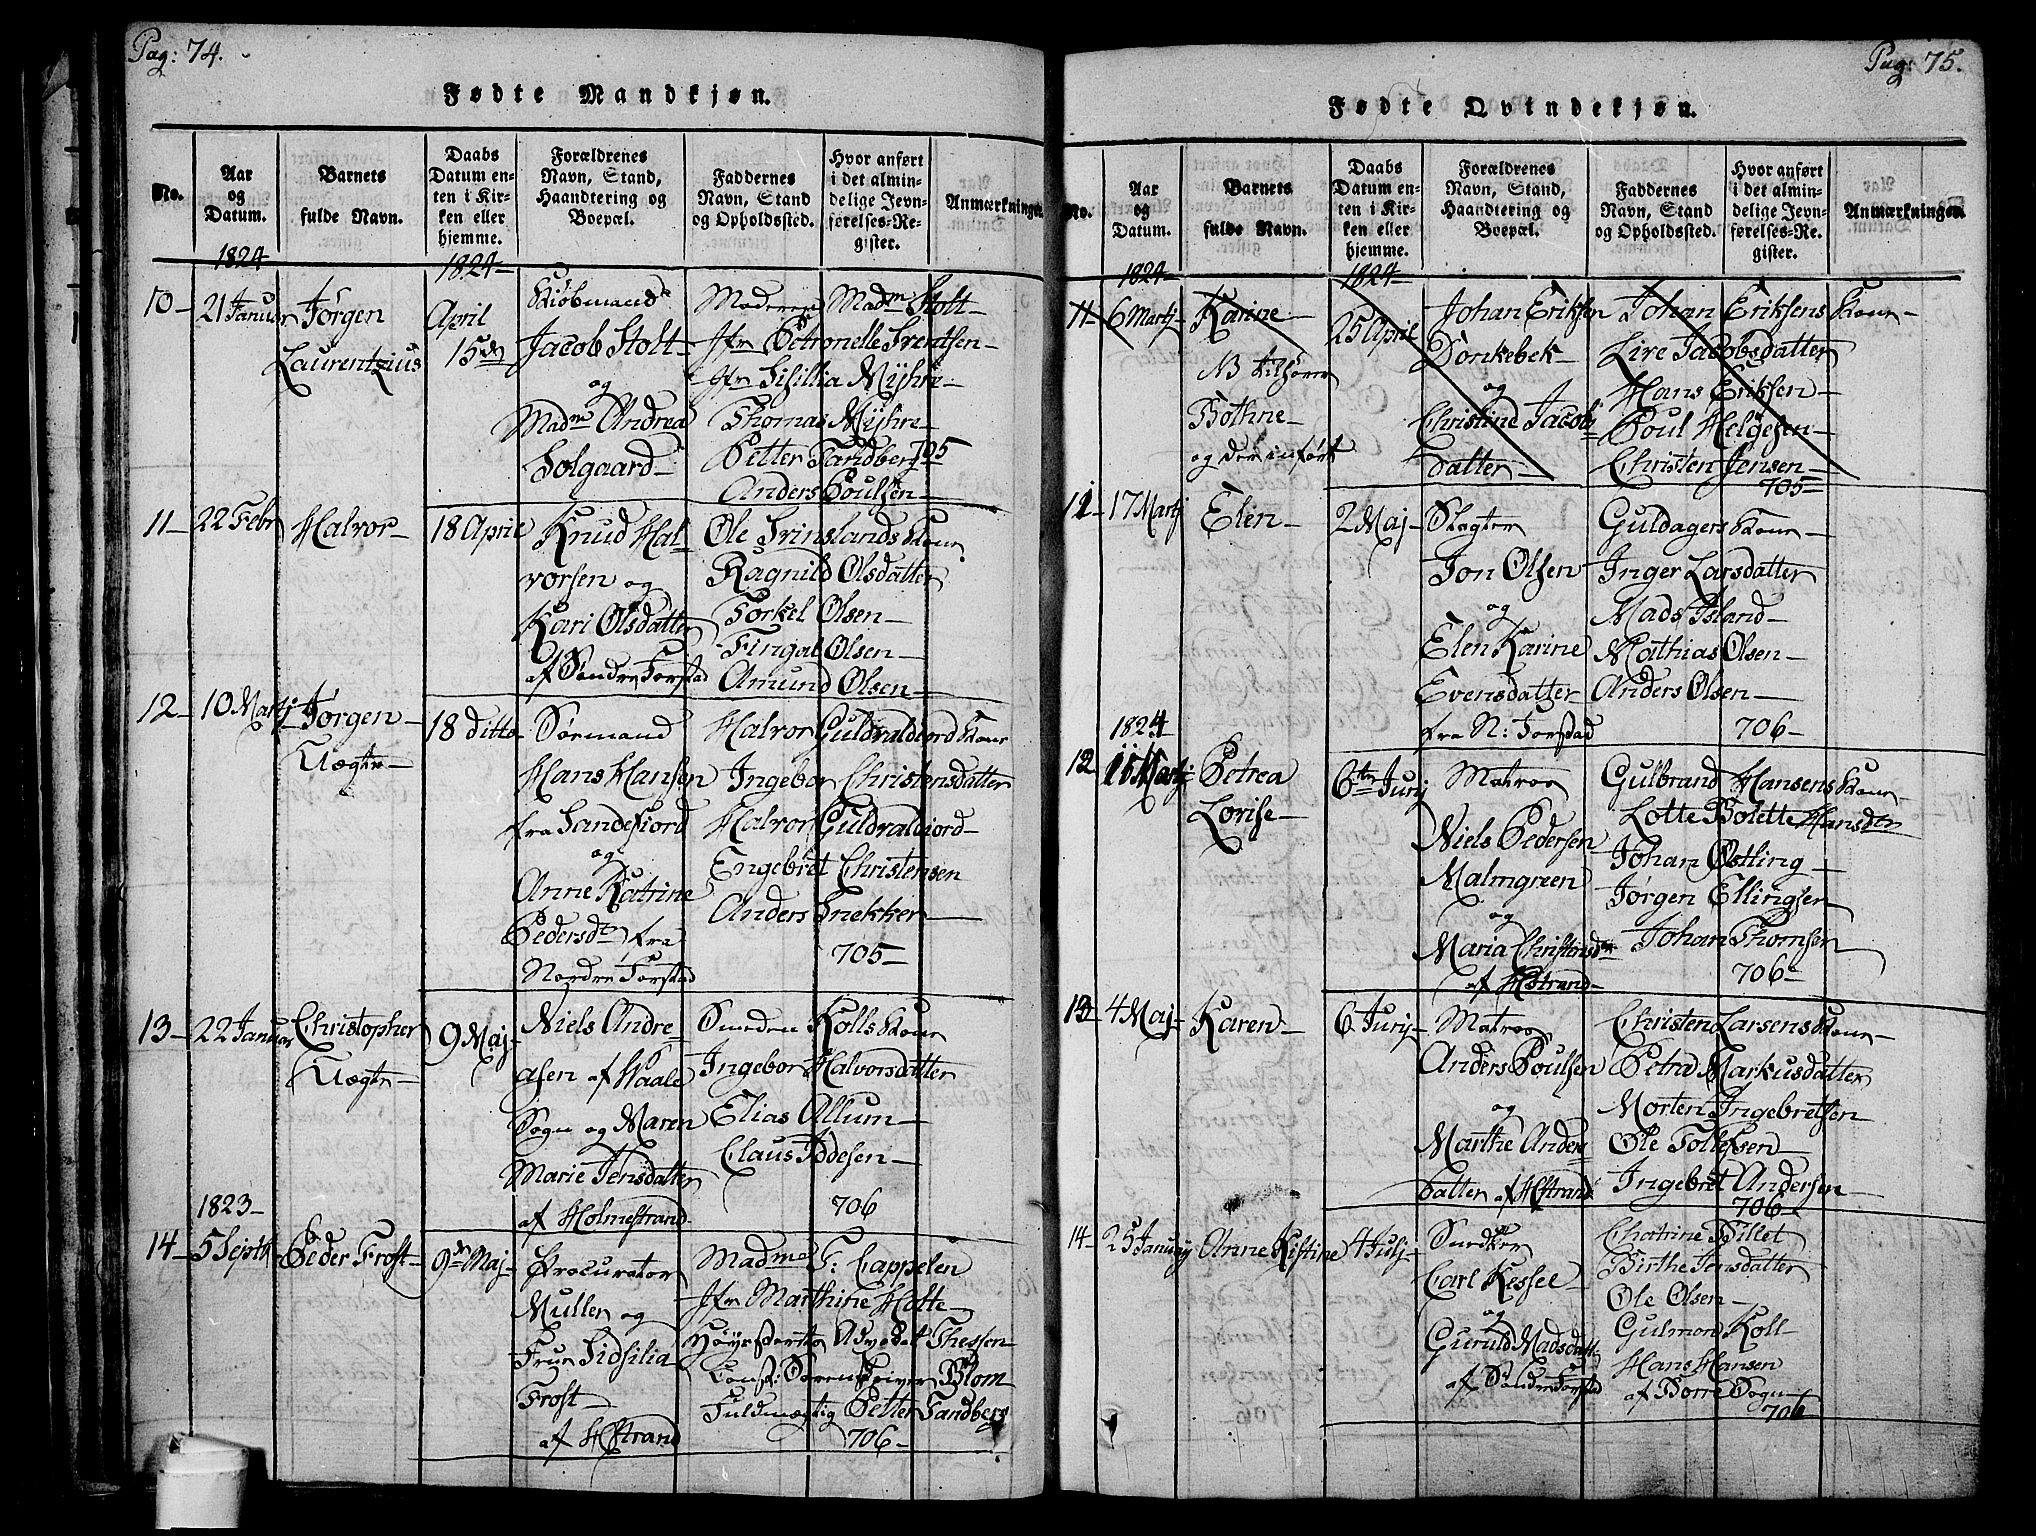 Pag: 74.
Fødte Mandkjøn.
No.
Aar
og
Datum.
Barnets
fulde Navn.
Daabs
Datum en-
ten i Kir-
ken eller
hjemme.
Forældrenes
Navn, Stand,
Haandtering og
Boepæl.
Faddernes
Navn, Stand
og Opholdssted.
Hvor anført
i det almin-
delige Jevn-
førelses-Re-
gister.
Anmærkninger.
1824
1824
10
21 Januar
Jörgen
Laurentzius
April
15de
Kiöbmand
Jacob Stolt
og
Madm Andrea
Solgaard
Moderen Madm Stolt
Jfr Petronelle Svendsen
Jfr Sisillia Myhre
Thomas Myhre
Petter Sandberg 705
Anders Poulsen
11
22 Febr
Halvor
18 April
Knud Hal-
vorsen og
Kari Olsdatter
af Söndre Torstad
Ole Srinslands Kone
Ragnild Olsdatter
Torkel Olsen
Fingal Olsen
Amund Olsen
12
10 Martj
Jörgen
Uægte
18 ditto
Sörmand
Hans Hansen
fra Sandefiord
og
Anne Katrine
Pedersdtr fra
Nordre Torstad
Halvor Guldraldiord Kone
Ingebor Christensdatter
Halvor Guldraldiord
Engebret Christensen
Anders Snekker
705
13
22 Januar
Christopher
Uægte
9 Maj
Niels Andre-
asen af Vaale
Sogn og Maren
Marie Jensdatter
af Holmestrand
Smeden Kolls Kone
Ingebor Halvorsdatter
Elias Allum
Claus Iddesen
706
1823
14
5 Septb
Peder Frost
9de Maj
Procurator
Muller og
Frue Sidsilia
Frost
af HStrand
Madme T: Cappelen
Jfr Marthine Hotte
Höyesterets Advocat Thessen
Const: Sorenskriver Blom
Fuldmægtig Petter Sandberg
706
Pag: 75.
Fødte Qvindekjøn.
No.
Aar
og
Datum.
Barnets
fulde Navn.
Daabs
Datum en-
ten i Kir-
ken eller
hjemme.
Forældrenes
Navn, Stand,
Haandtering og
Boepæl.
Faddernes
Navn, Stand
og Opholdssted.
Hvor anført
i det almin-
delige Jevn-
førelses-Re-
gister.
Anmærkninger.
1824
1824
11
6 Martj
Karine
NB tilhörer
Bothne
og der infört
25 April
Johan Eriksen
Donkebek
og
Christine Jacobs
datter
Johan Eriksens Kone
Live Jacobsdatter
Hans Eriksen
Poul Helgesen
Christen Jensen
705
11
17 Martj
Elen
2 Maj
Slagter
Jon Olsen
og
Elen Karine
Evensdatter
fra N: Torstad
Guldagers Kone
Inger Larsdatter
Mads Island
Mathias Olsen
Anders Olsen
706
1824
12
11 Martj
Petrea
Lovise
6te Junj
Matros
Niels Pedersen
Malmgreen
og
Maria Christensdtr
af HStrand
Gulbrand Hansens Kone
Lotte Bolette Hansdtr
Johan Østling
Jørgen Ellingsen
Johan Thomsen
706
13
4 Maj
Karen
6 Junj
Matros
Anders Poulsen
og
Marthe Anders
datter af HStrand
Christen Larsens Kone
Petra Markusdatter
Morten Ingebretsen
Ole Tollefsen
Ingebret Andersen
706
14
25 January
Anne Kistine
4 Julj
Snedker
Carl Kessel
og
Gunild Madsdatt
af Söndre Torstad
Chatrine Billet
Birthe Jensdatter
Ole Olsen
Gulmon Koll
Hans Hansen
af Borre Sogn
706